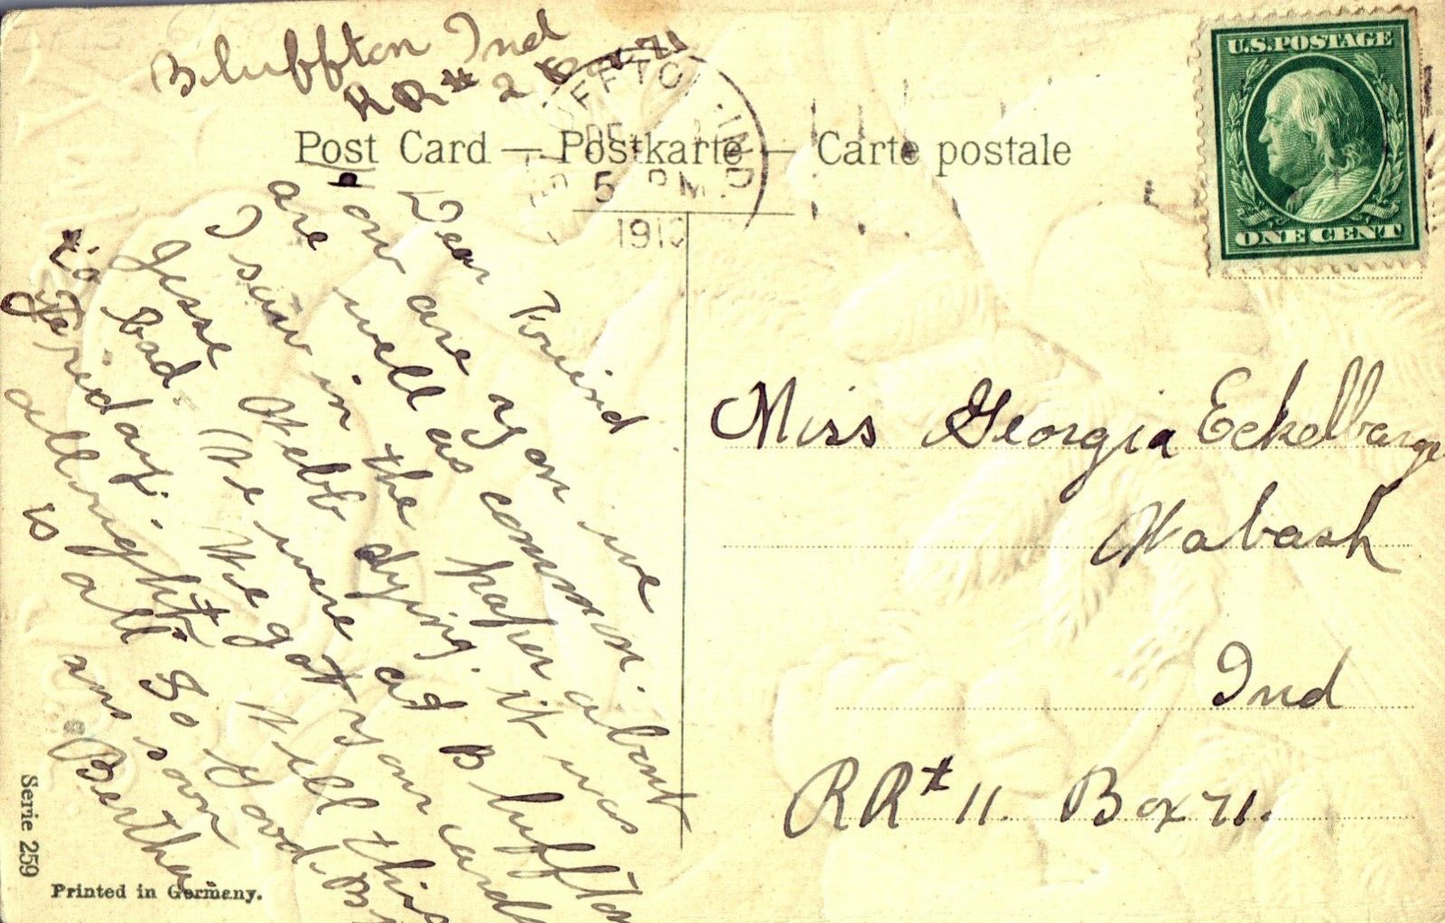 Bluffton Ind
RR# 2 Box 71
U.S. POSTAGE
ONE CENT
Post Card — Postkarte — Carte postale
UFFTO IND
5 PM
191
Dear Friend
How are you we
are well as common.
I saw in the paper about
Jesse Webb dying. it was
to bad. We were at Bluffton
Friday. We got your card
allright. Will this
is all So Good. By
ans soon
Bertha
Miss Georgia Eckelbarge
Wabash
Ind
RR# 11. Box 71.
Serie 259
Printed in Germany.